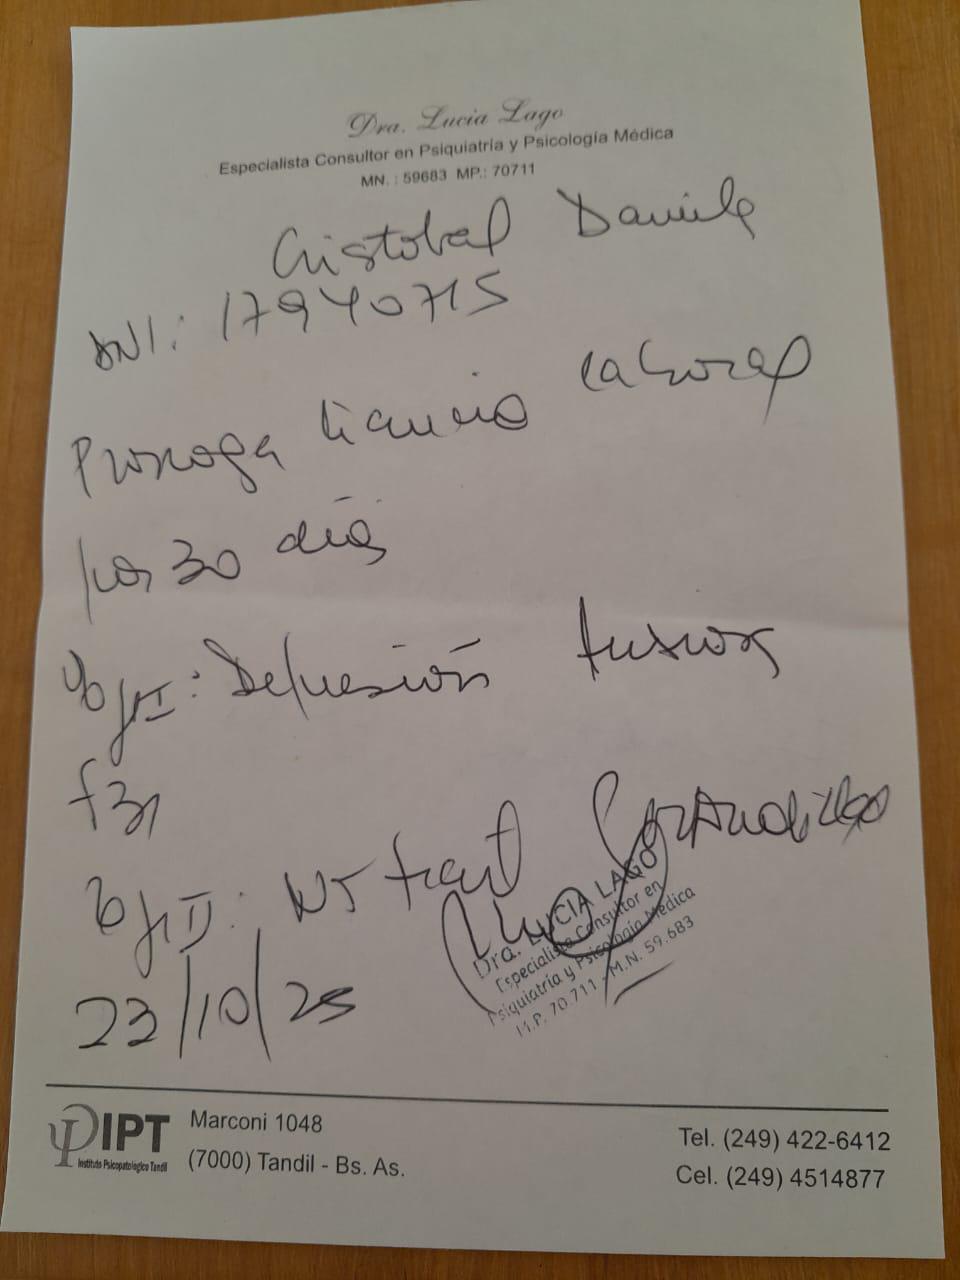 Dra. Lucia Lago
Especialista Consultor en Psiquiatría y Psicología Médica
MN. : 59683 MP.: 70711
Cristobal Daniela
DNI: 17940715
Prorroga licencia laboral
por 30 días
Depresión
F31
II: tratt
23/10/25
Dra. LUCIA LAGO
Especialista Consultor en
Psiquiatría y Psicología Médica
M.P. 70.711 - M.N. 59.683
IPT
Instituto Psicopatológico Tandil
Marconi 1048
(7000) Tandil - Bs. As.
Tel. (249) 422-6412
Cel. (249) 4514877